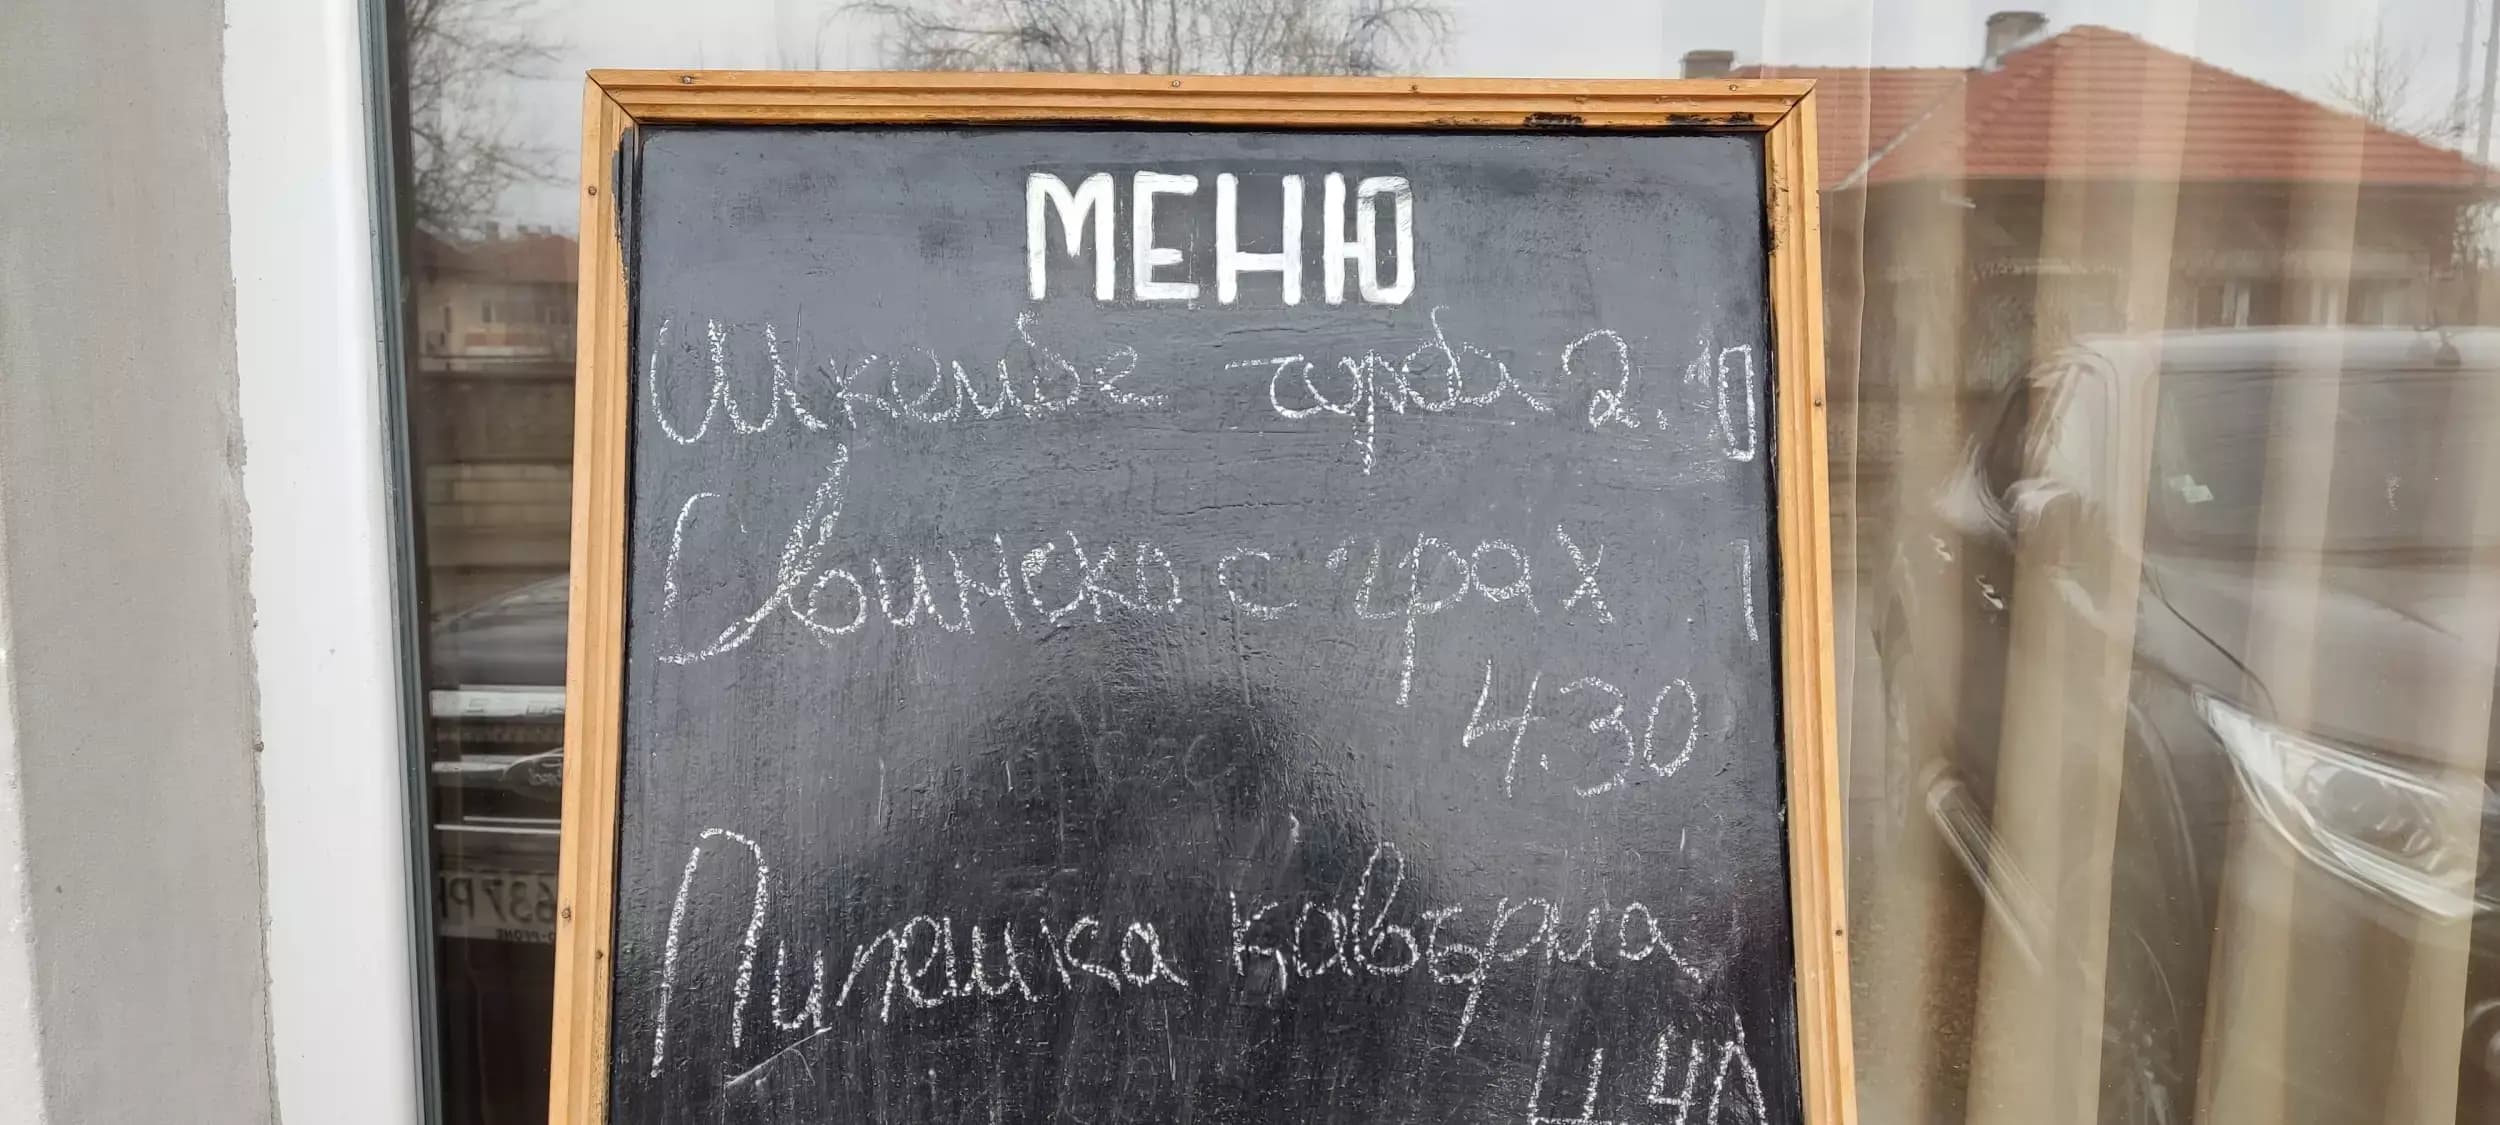 МЕНЮ
Шкембе - чорба 2.10
Свинско с грах
4.30
Пилешка кавърма
4.40